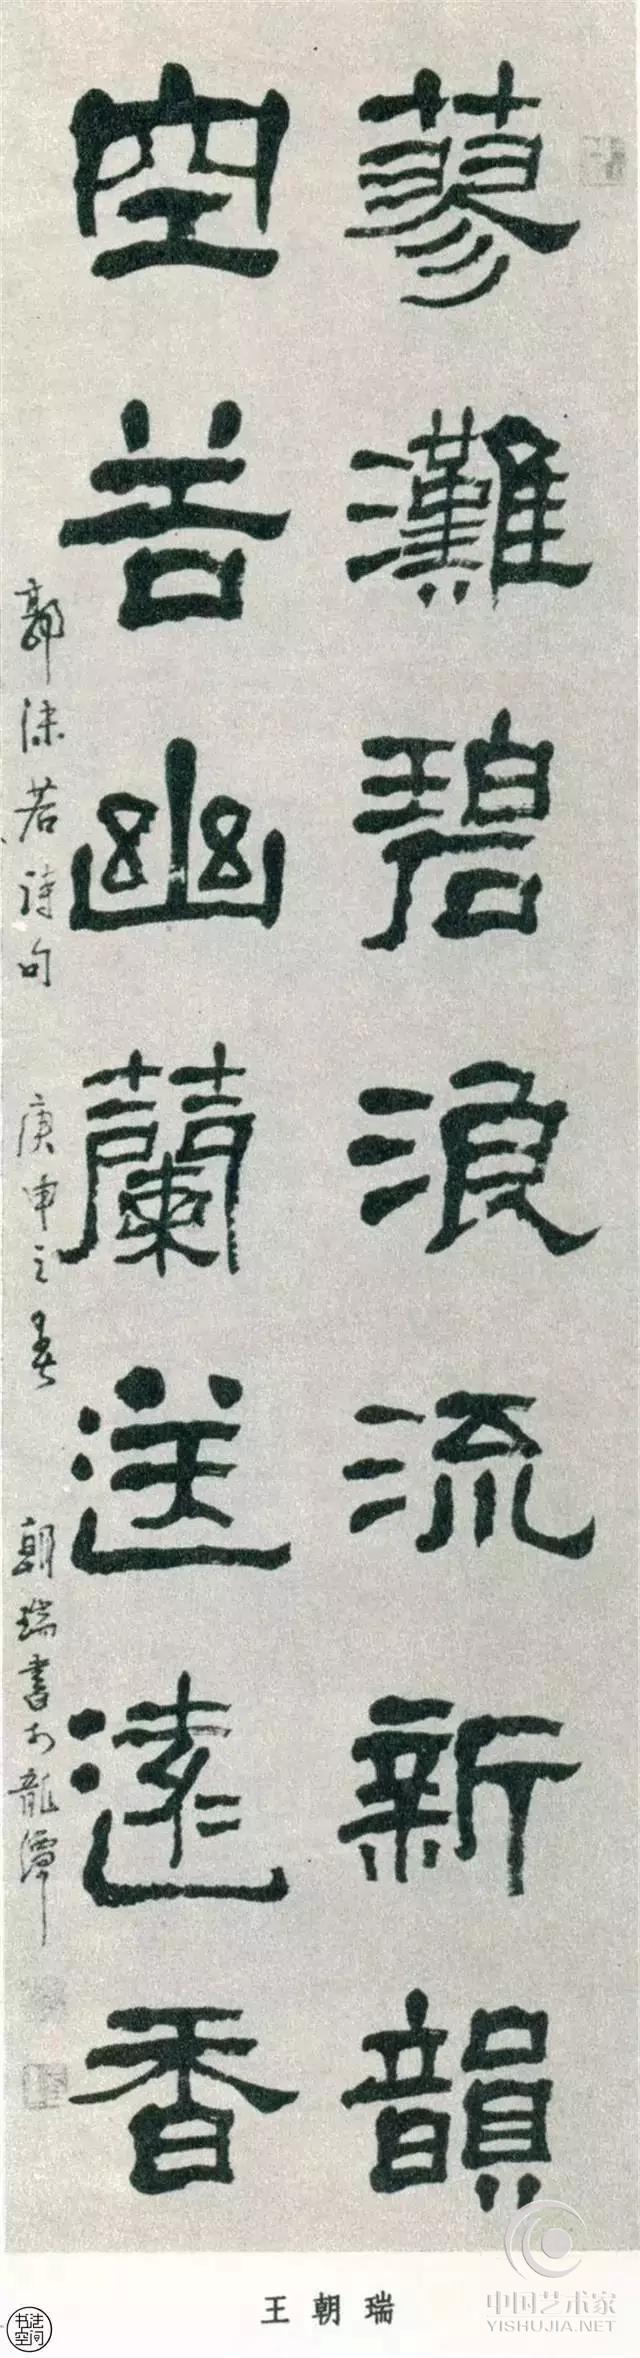 蓼灘碧浪流新韻
空谷幽蘭送遠香
郭沫若詩句 庚申之春 朝瑞書於龍潭
王朝瑞
书法空间
中国艺术家
YISHUJIA.NET